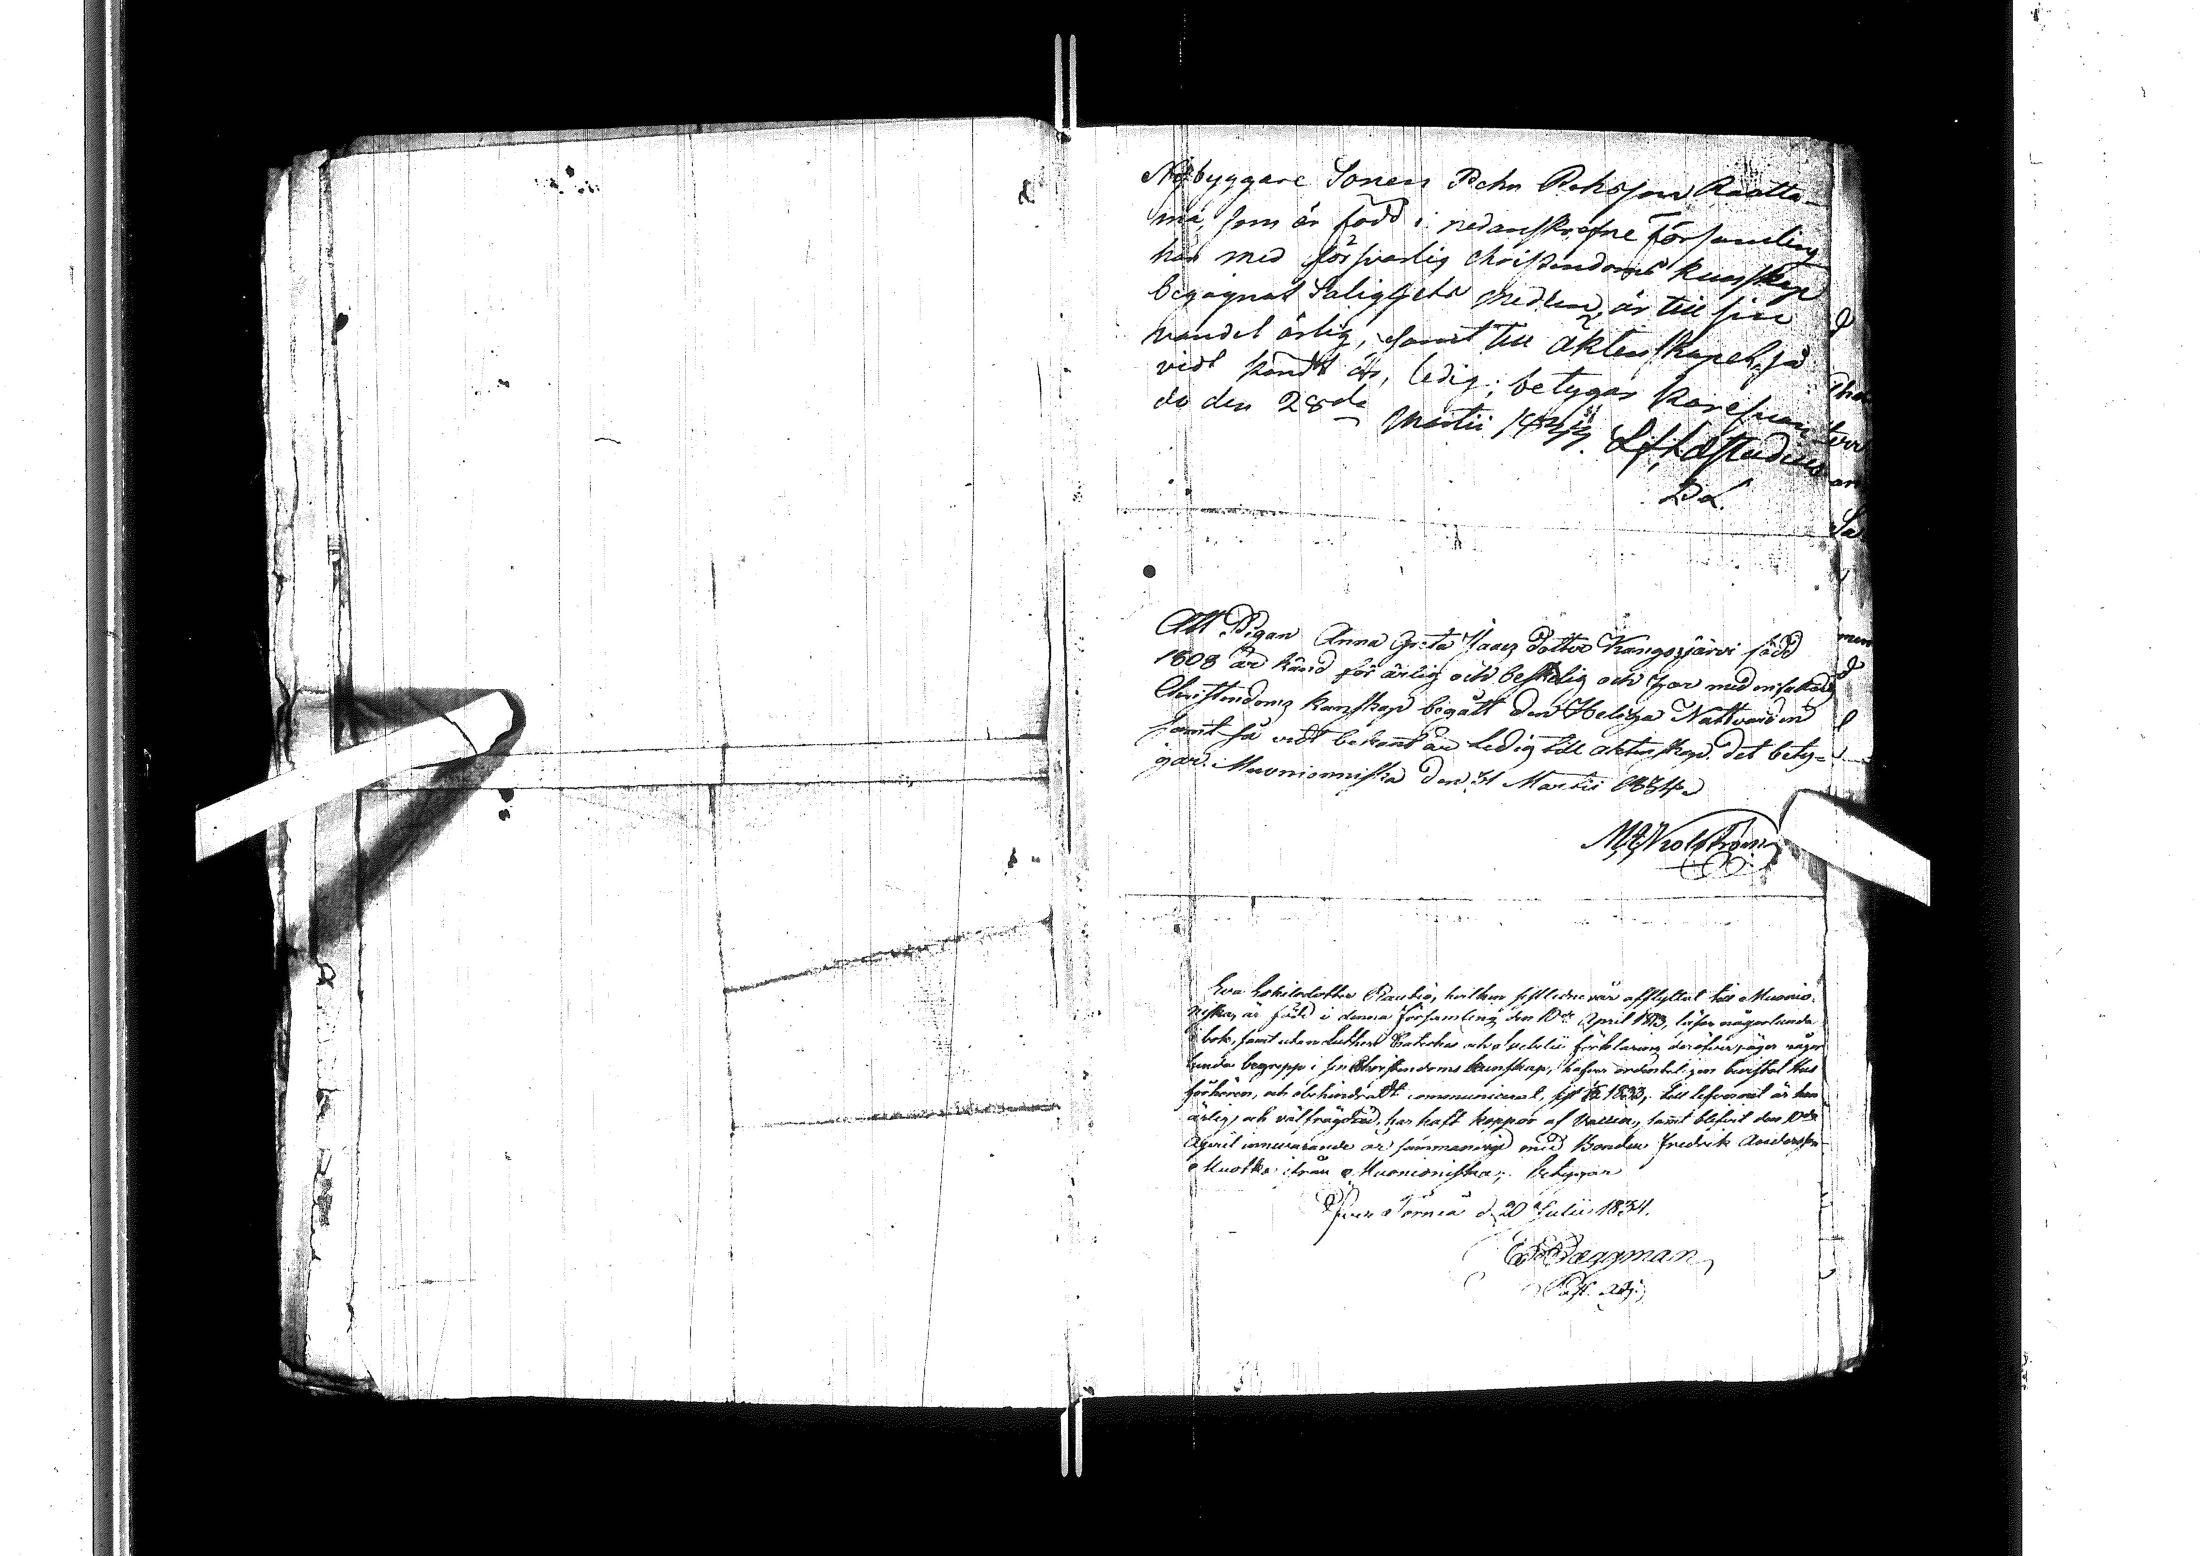 Nybyggare Sonen Pehr Pehrsson Raatta-
ma, som är född i nedanskrefne församling
har med försvarlig christendoms kunskap
begagnat Salighets medlen, är till sin
vandel ärlig, samt till äktenskapet, så
vidt kändt är, ledig; betygar Karesuan-
do den 28de Martii
L. L. Læstadius
Att Pigan Anna Greta Isaacs dotter Kangosjärvi född
1808 är känd för ärlig och beskedlig och har med
Christendoms kunskap begått den Heliga Nattvarden
samt så vidt bekant är ledig till äktenskap. det bety-
gar. Muonionniska den 31 Martii 1834
Eva Eskilsdotter Rautio, hvilken sistledne vår afflyttat till Muonio-
niska, är född i denna församling den 10de April läser någorlunda
i bok, samt utan Luthers Cateches och Svebelii förklaring deröfver, äger någor
lunda begrepp i sin Christendoms kunskap, hafver ordenteligen bevistat Hus
förhören, och obehindradt communicerat, sist 1833, till lefvernet är hon
ärlig och välfrägdad, har haft koppor af vaccin, samt blifvit den
April innevarande år sammanvigd med Bonden Fredrik Andersson
Muotka ifrån Muonioniska; betygar
Öfver Torneå d. 20 Julii 1834.
Past. adj.